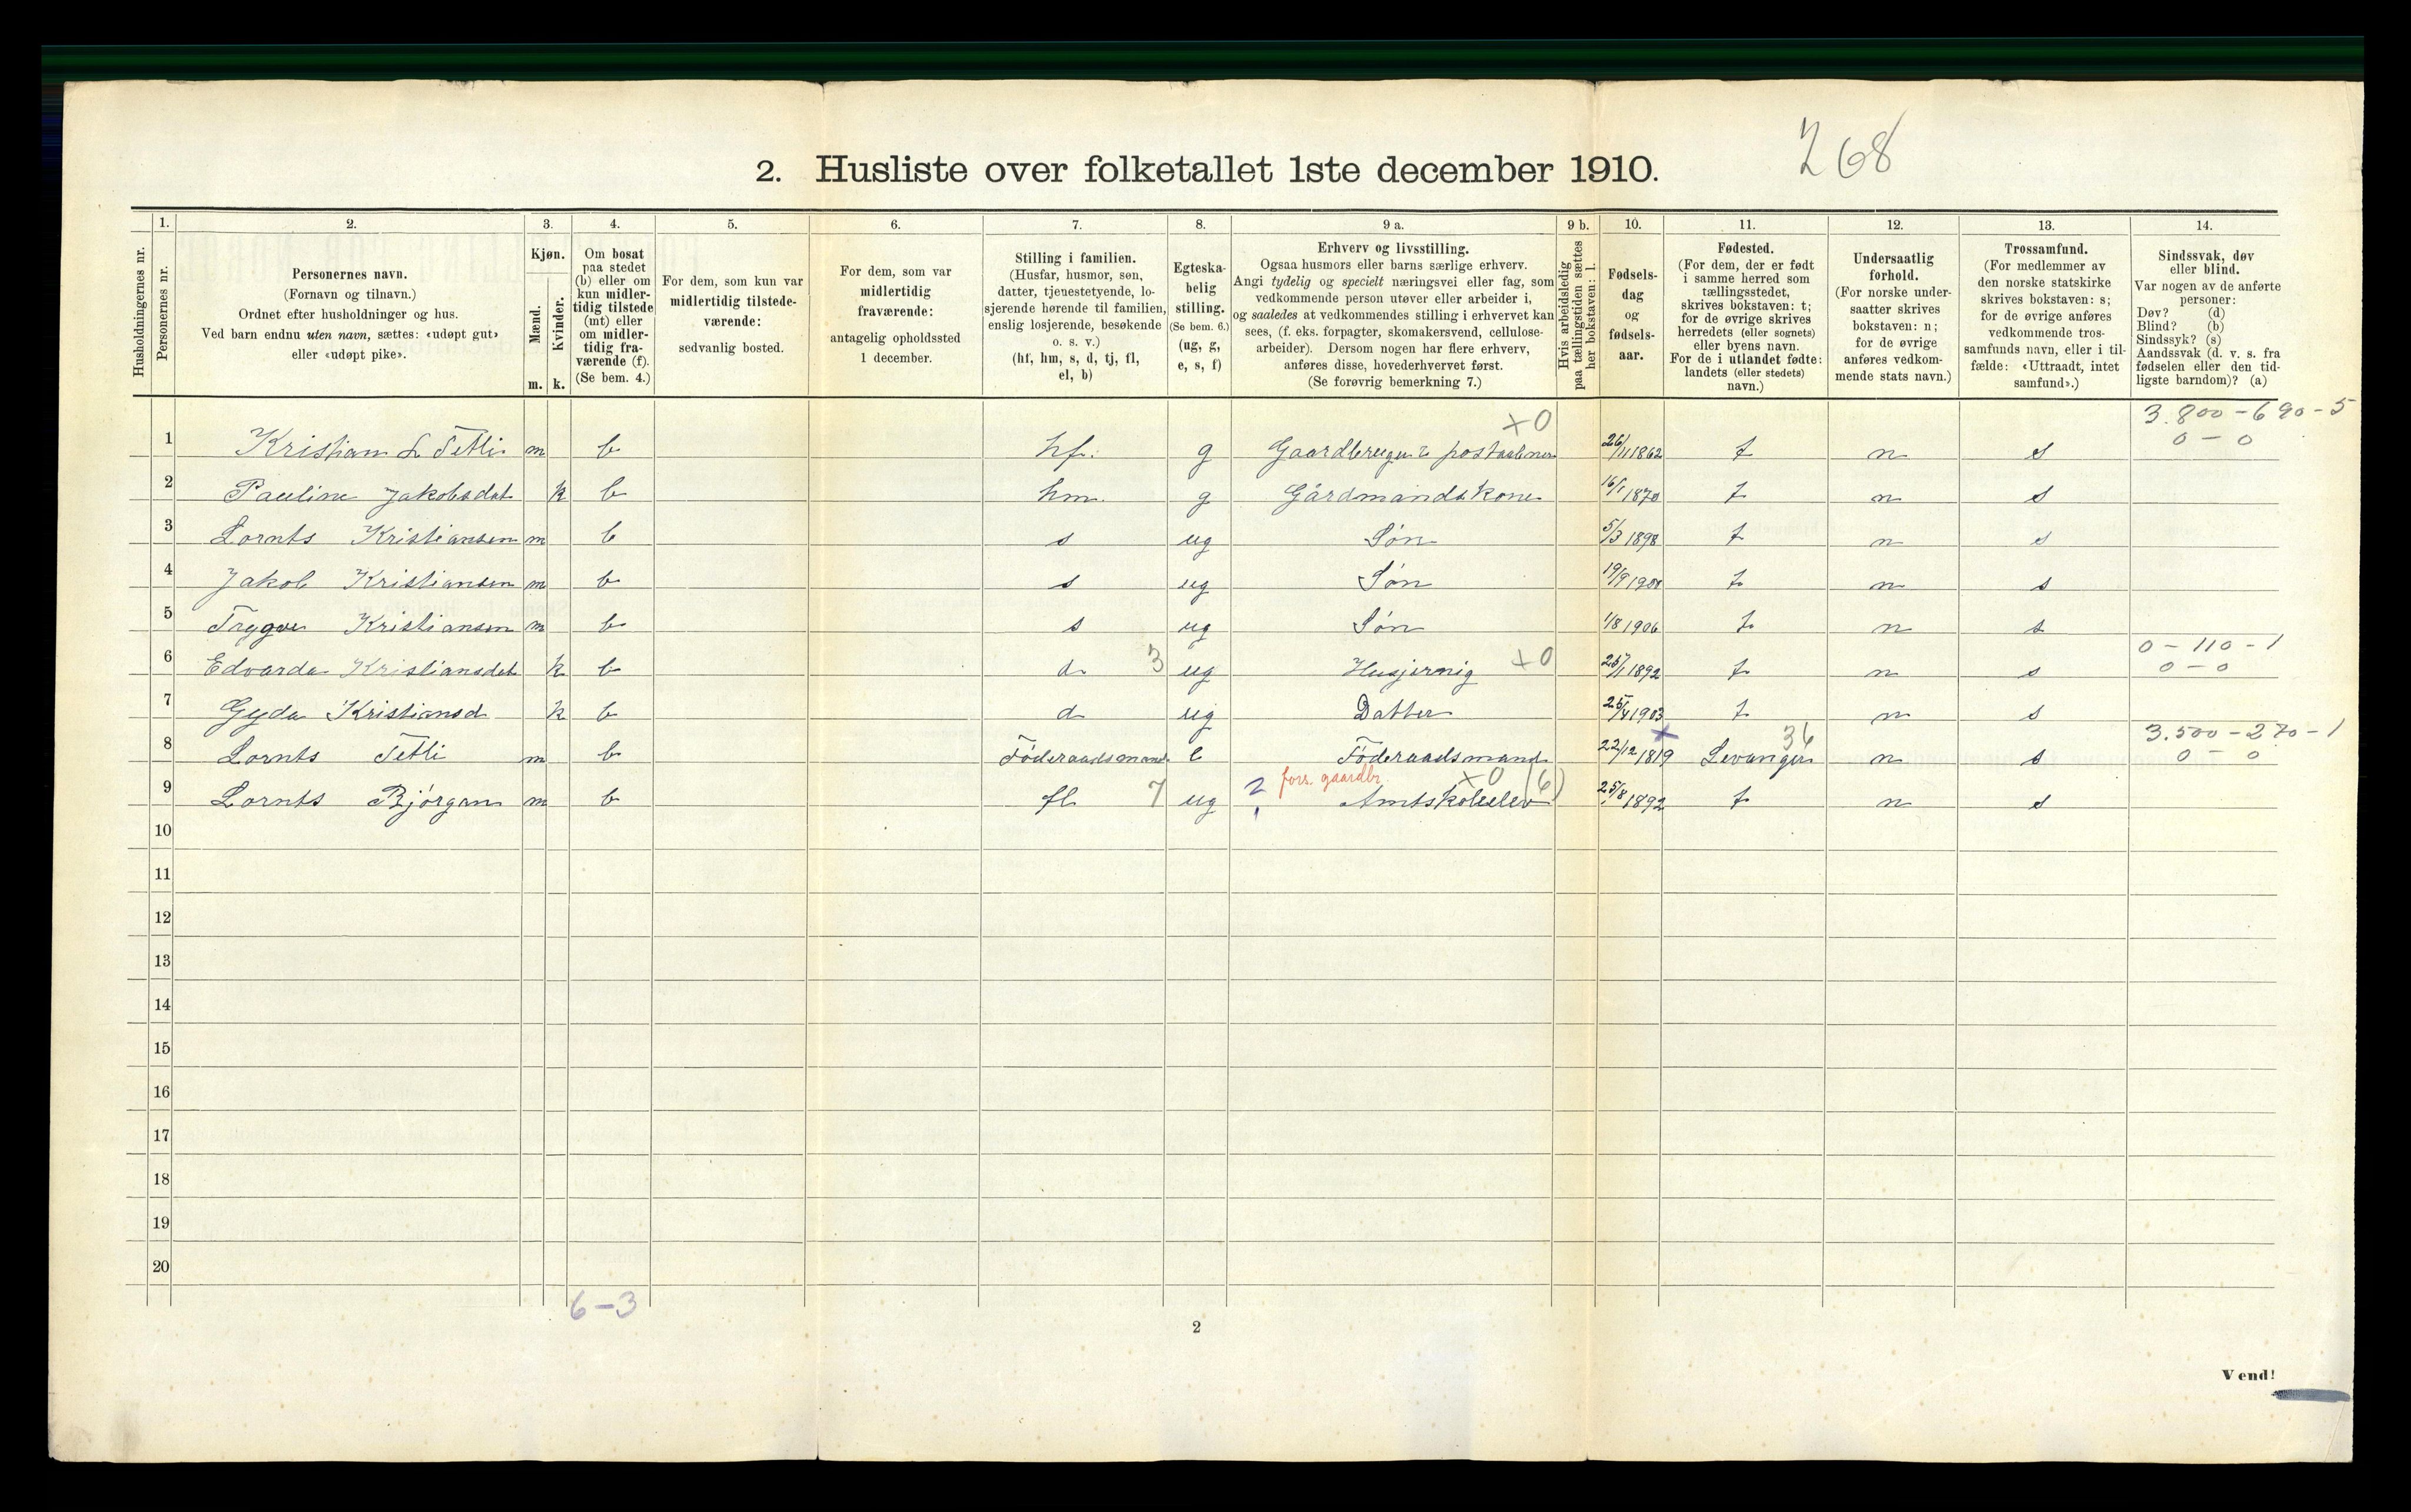 268
2. Husliste over folketallet 1ste december 1910.
Husholdningernes nr.
1. Personernes nr.
2. Personernes navn.
(Fornavn og tilnavn.)
Ordnet efter husholdninger og hus.
Ved barn endnu uten navn, sættes: «udøpt gut»
eller «udøpt pike».
3. Kjøn.
Mænd. Kvinder.
m. k.
4. Om bosat
paa stedet
(b) eller om
kun midler-
tidig tilstede
(mt) eller
om midler-
tidig fra-
værende (f).
(Se bem. 4.)
5. For dem, som kun var
midlertidig tilstede-
værende:
sedvanlig bosted.
6. For dem, som var
midlertidig
fraværende:
antagelig opholdssted
1 december.
7. Stilling i familien.
(Husfar, husmor, søn,
datter, tjenestetyende, lo-
sjerende hørende til familien,
enslig losjerende, besøkende
o. s. v.)
(hf, hm, s, d, tj, fl,
el, b)
8. Egteska-
belig
stilling.
(Se bem. 6.)
(ug, g,
e, s, f)
9 a. Erhverv og livsstilling.
Ogsaa husmors eller barns særlige erhverv.
Angi tydelig og specielt næringsvei eller fag, som
vedkommende person utøver eller arbeider i,
og saaledes at vedkommendes stilling i erhvervet kan
sees, (f. eks. forpagter, skomakersvend, cellulose-
arbeider). Dersom nogen har flere erhverv,
anføres disse, hovederhvervet først.
(Se forøvrig bemerkning 7.)
9 b. Hvis arbeidsledig
paa tællingstiden sættes
her bokstaven: l.
10. Fødsels-
dag
og
fødsels-
aar.
11. Fødested.
(For dem, der er født
i samme herred som
tællingsstedet,
skrives bokstaven: t;
for de øvrige skrives
herredets (eller sognets)
eller byens navn.
For de i utlandet fødte:
landets (eller stedets)
navn.)
12. Undersaatlig
forhold.
(For norske under-
saatter skrives
bokstaven: n;
for de øvrige
anføres vedkom-
mende stats navn.)
13. Trossamfund.
(For medlemmer av
den norske statskirke
skrives bokstaven: s;
for de øvrige anføres
vedkommende tros-
samfunds navn, eller i til-
fælde: «Uttraadt, intet
samfund».)
14. Sindssvak, døv
eller blind.
Var nogen av de anførte
personer:
Døv? (d)
Blind? (b)
Sindssyk? (s)
Aandssvak (d. v. s. fra
fødselen eller den tid-
ligste barndom)? (a)
x0 3.800 - 690 - 5
0 - 0
1 Kristian L Tetli m b hf. g Gaardbruger & postaabner 26/11 1862 t n s
2 Pauline Jakobsdat k b hm. g Gårdmandskone 16/1 1870 t n s
3 Lornts Kristiansen m b s ug Søn 5/3 1898 t n s
4 Jakob Kristiansen m b s ug Søn 19/9 t n s
5 Trygve Kristiansen m b s ug Søn 1/8 1906 t n s
0 - 110 - 1
0 - 0
6 Edvarda Kristiansdat k b d 3 ug Husjerning x0 1892 t n s
7 Gyda Kristiansd k b d ug Datter 1903 t n s
x 36 3.500 - 270 - 1
0 - 0
8 Lornts Tetli m b Föderaadsmand e Föderaadsmand 22/12 1819 Levanger n s
forr. gaardbr. x0 (6)
9 Lornts Bjørgan m b fl 7 ug 2 Amtskoleelev 25/8 1892 t n s
10
11
12
13
14
15
16
17
18
19
20
6-3
2
Vend!